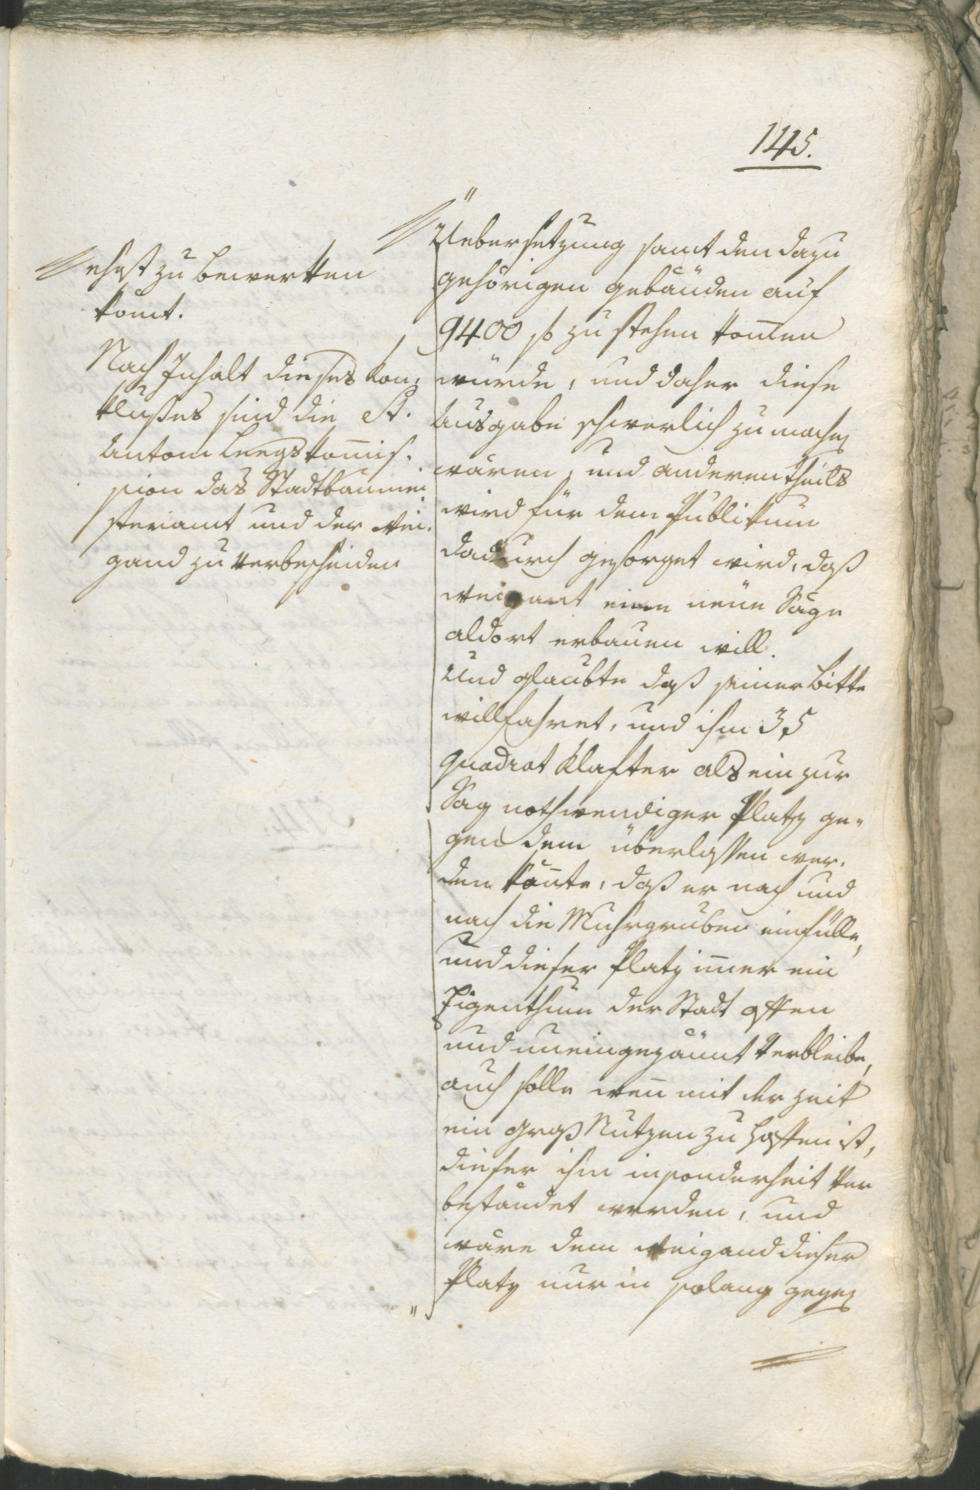 145.
ehest zu bewerken
könnt.
Nach Inhalt dieses Kon,
klußes sind die St.
Antoni Lengskom̄is,
sion das Stadtbaumei
steramt und der Wei,
gand zu verbescheiden
Uebersetzung samt den dazu
gehörigen gebäuden auf
9400 f zu stehen kom̄en
würde, und daher diese
Ausgabe schwerlich zu machen
wären, und anderentheils
wird für dem Publikum
dadurch gesorget wird, daß
Weigant eine neüe Säge
aldort erbauen will.
Und glaubte daß seiner Bitte
willfahret, und ihm 35
Quadrat Klafter als ein zur
Sag nothwendiger Platz ge„
gen dem überlassen wer,
den kön̄te, daß er nach und
nach die Muhrgruben einfülle,
und dieser Platz im̄er ein
Eigenthum der Stadt offen
und uneingezäunt verbleibe,
auch solle wen̄ mit der Zeit
ein groß Nutzen zu hoffen ist,
dieser ihm insonderheit ver
bestandet werden, und
wäre dem Weigand dieser
Platz nur in solang gegen